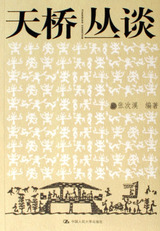 天桥丛谈
张次溪 编著
中国人民大学出版社